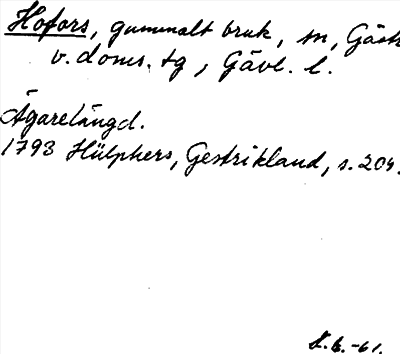 Hofors, gammalt bruk, sn, Gästr
v. doms. tg, Gävl. l.
Ägarelängd.
1793 Hülphers, Gestrikland, s. 209.
-61.